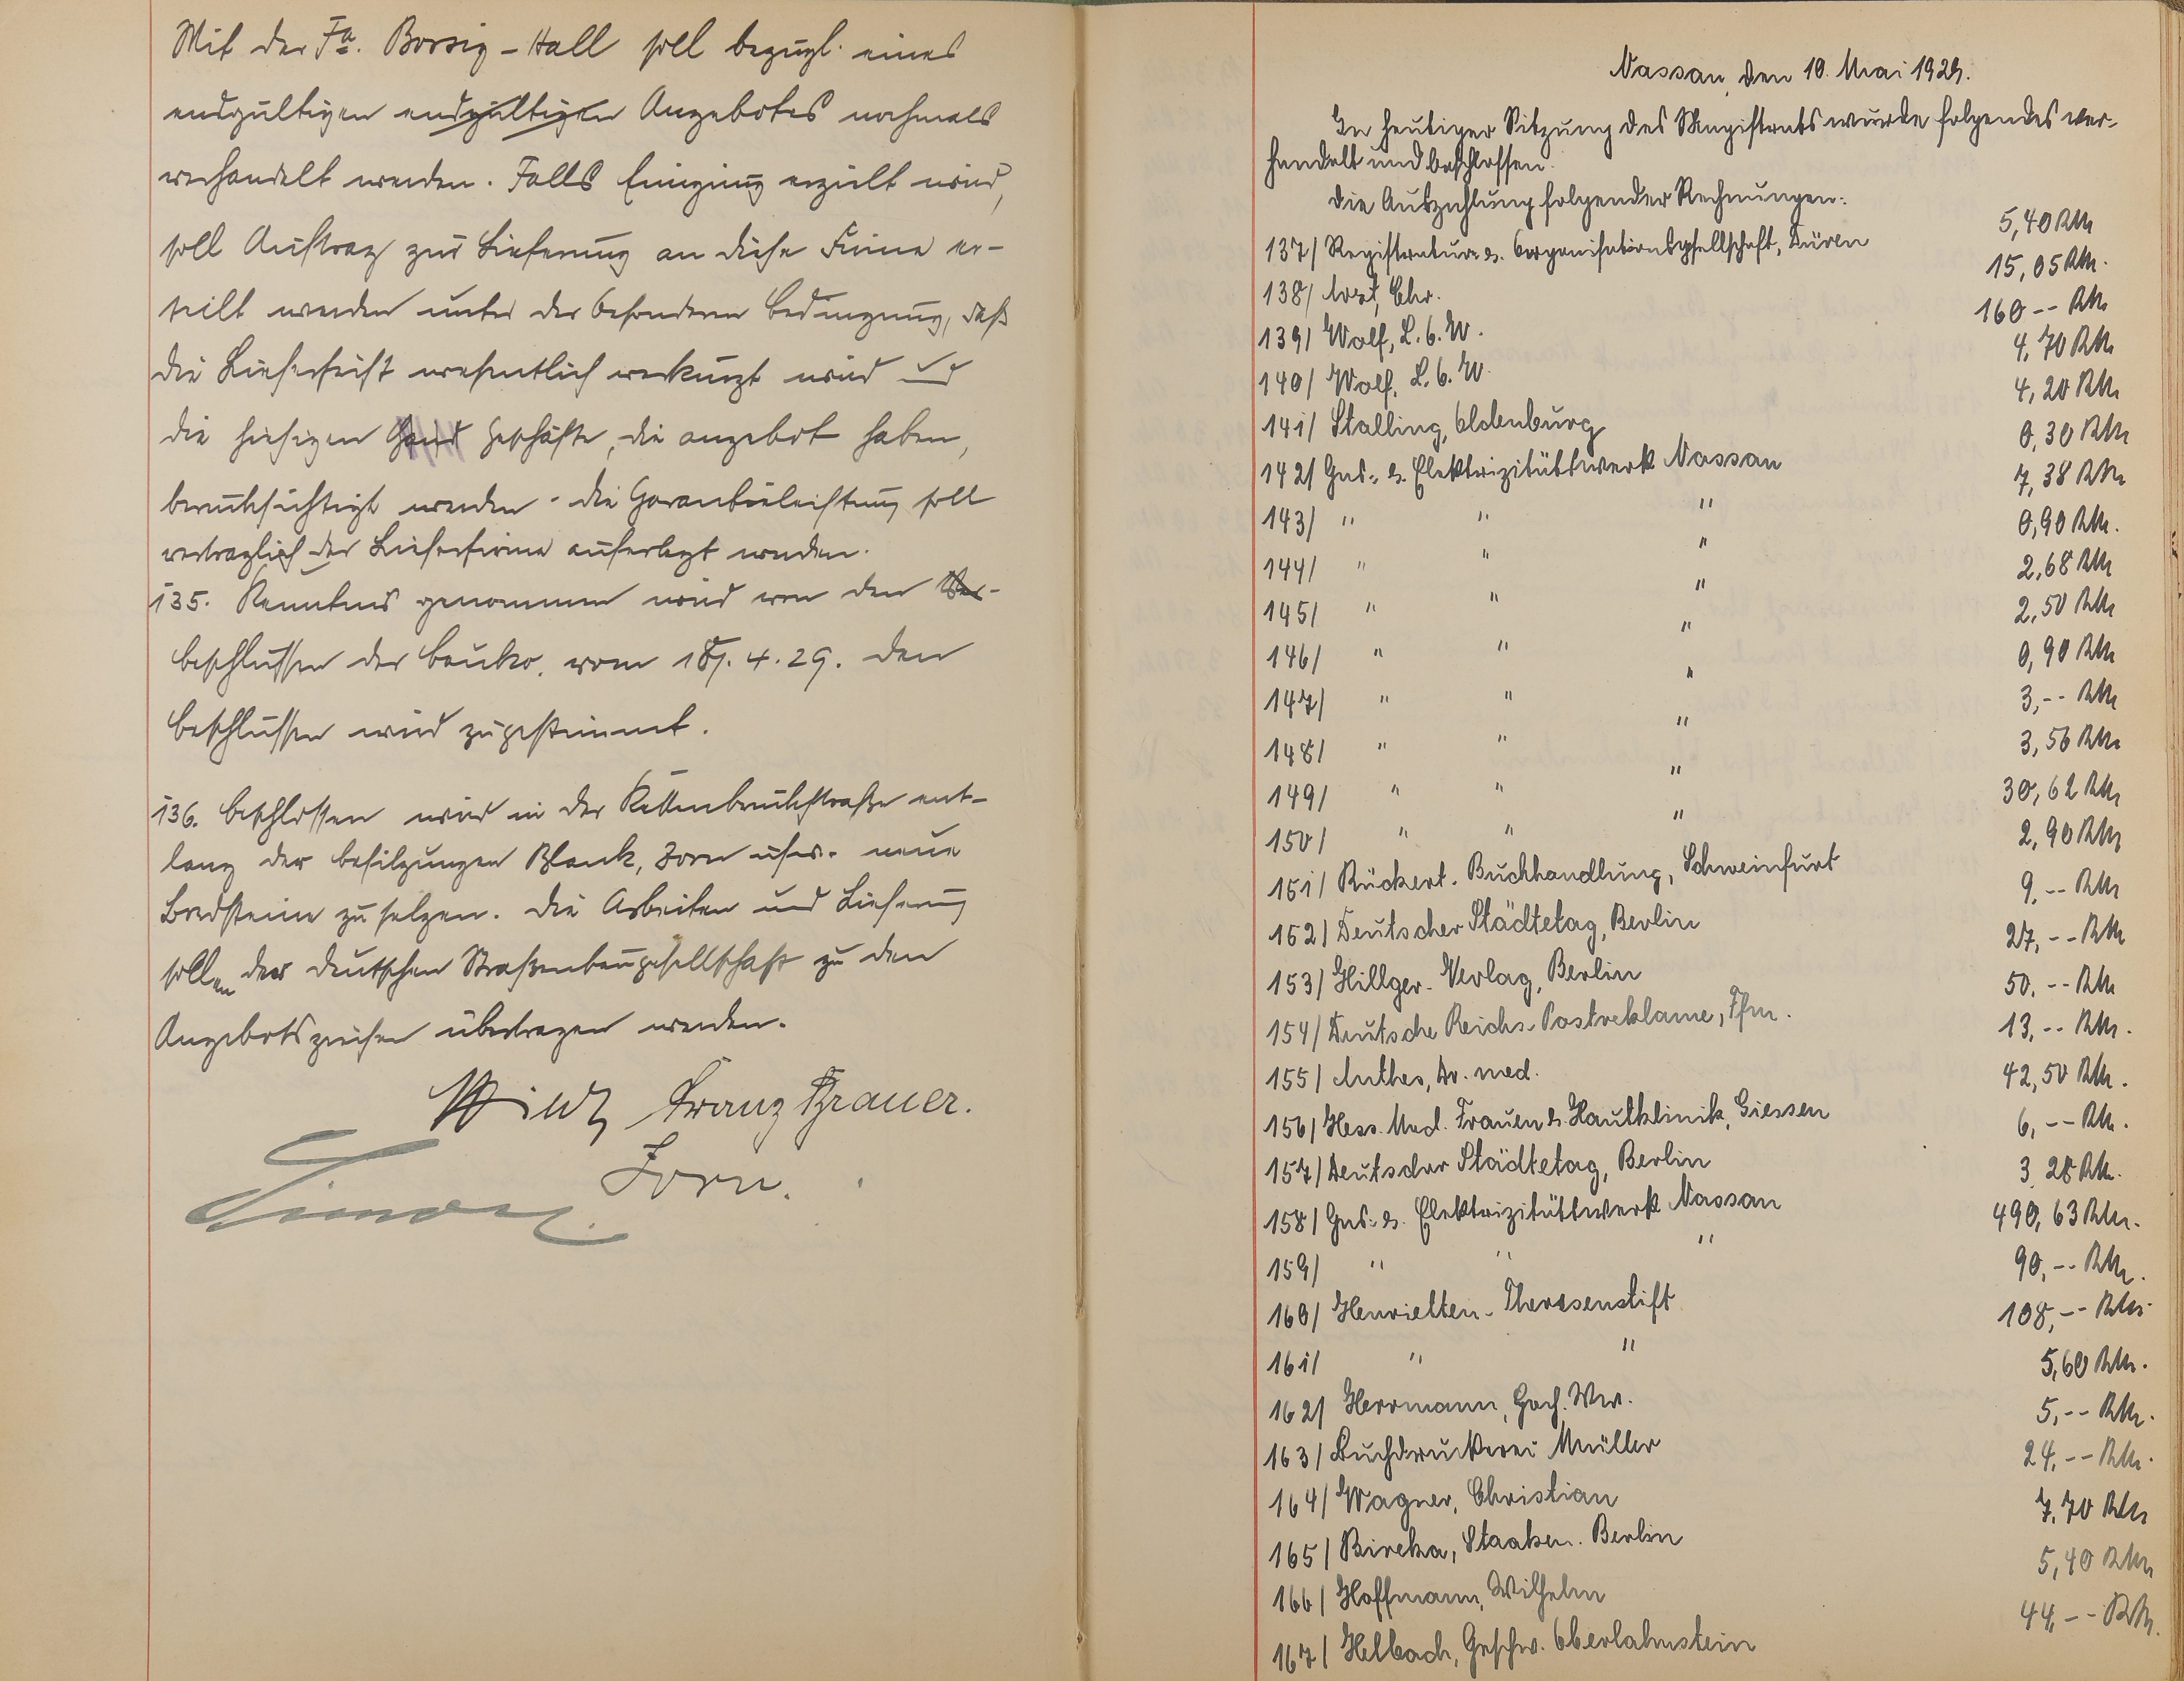 Mit der Fa. Borsig-Hall soll bezügl. eines
endgültigen endgültigen Angebotes nochmals
verhandelt werden. Falls Einigung erzielt wird,
soll Auftrag zur Lieferung an diese Firma er-
teilt werden unter der besonderen Bedingung, daß
die Lieferfrist wesentlich verkürzt wird und
die hiesigen Geschäfte, die angebot haben,
berücksichtigt werden. die Garantieleistung soll
vertraglich der Lieferfirma auferlegt werden.
135. Kenntnis genommen wird von den Be-
beschlüssen der Bauko. vom 18. 4. 29. den
beschlüssen wird zugestimmt.
136. beschlossen wird in der Kettenbrückstraße ent-
lang der besitzungen Blank, Zorn usw. neue
Bordsteine zu setzen. die Arbeiten und Lieferung
sollen der deutschen Straßenbaugesellschaft zu den
Angebotspreisen übertragen werden.
Franz Brauer.
Zorn.
Simon.
Nassau, den 10. Mai 1929.
In heutiger Sitzung des Magistrats wurde folgendes ver-
handelt und beschlossen:
die Auszahlung folgender Rechnungen:
137/ Registratur- u. Organisationsgesellschaft, Düren 5,40 RM
138/ Arzt, Chr. 15,05 RM.
139/ Wolf, L. C. W. 160 -- RM
140/ Wolf, L. C. W. 4,70 RM
141/ Stalling, Oldenburg 4,20 RM
142/ Gas- u. Elektrizitätswerk Nassau 0,30 RM
143/ " " " 7,38 RM
144/ " " " 0,90 RM.
145/ " " " 2,68 RM
146/ " " " 2,50 RM
147/ " " " 0,90 RM
148/ " " " 3,-- RM
149/ " " " 3,56 RM
150/ " " " 30,62 RM
151/ Rückert-Buchhandlung, Schweinfurt 2,90 RM
152/ Deutscher Städtetag, Berlin 9,-- RM
153/ Hillger-Verlag, Berlin 27,-- RM
154/ Deutsche Reichs-Postreklame, Ffm. 50,-- RM
155/ Anthes, Dr. med. 13,-- RM.
156/ Hess. Med. Frauen u. Hautklinik, Giessen 42,50 RM.
157/ Deutscher Städtetag, Berlin 6,-- RM.
158/ Gas- u. Elektrizitätswerk Nassau 3,28 RM.
159/ " " " 490,63 RM.
160/ Henrietten-Theresenstift 90,-- RM.
161/ " " 108,-- RM.
162/ Herrmann, Jach. Ww. 5,60 RM.
163/ Buchdruckerei Müller 5,-- RM.
164/ Wagner, Christian 24,-- RM.
165/ Bireka, Staaken-Berlin 7,70 RM
166/ Hoffmann, Wilhelm 5,40 RM
167/ Helbach, Geschw. Oberlahnstein 44,-- RM.